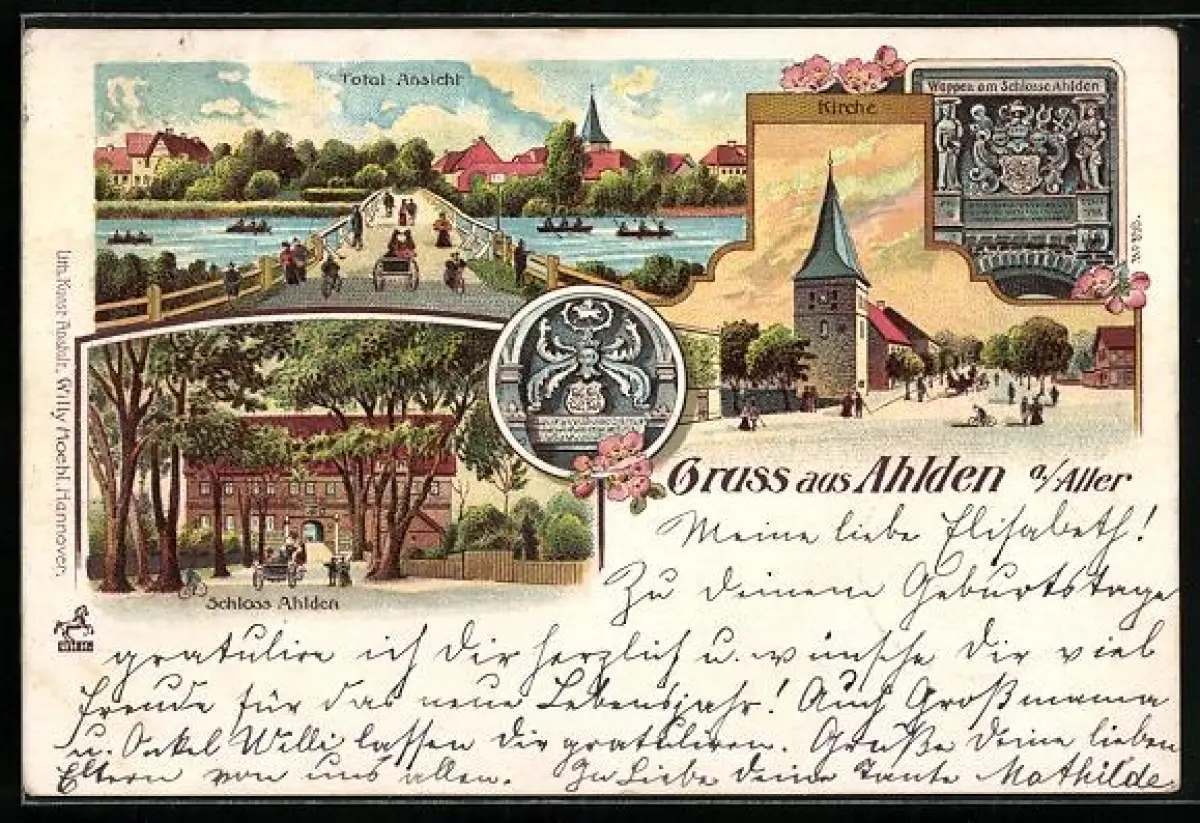 Total-Ansicht
Kirche
Wappen am Schlosse Ahlden
Lith. Kunst-Anstalt. Willy Moehl, Hannover.
Schloss Ahlden
W.M.H.
Gruss aus Ahlden a/Aller
Meine liebe Elisabeth!
Zu deinem Geburtstage
gratulire ich Dir herzlich u. wünsche Dir viel
Freude für das neue Lebensjahr! Auch Großmama
u. Onkel Willi lassen Dir gratuliren. Grüße Deine lieben
Eltern von uns allen. In Liebe deine Tante Mathilde.